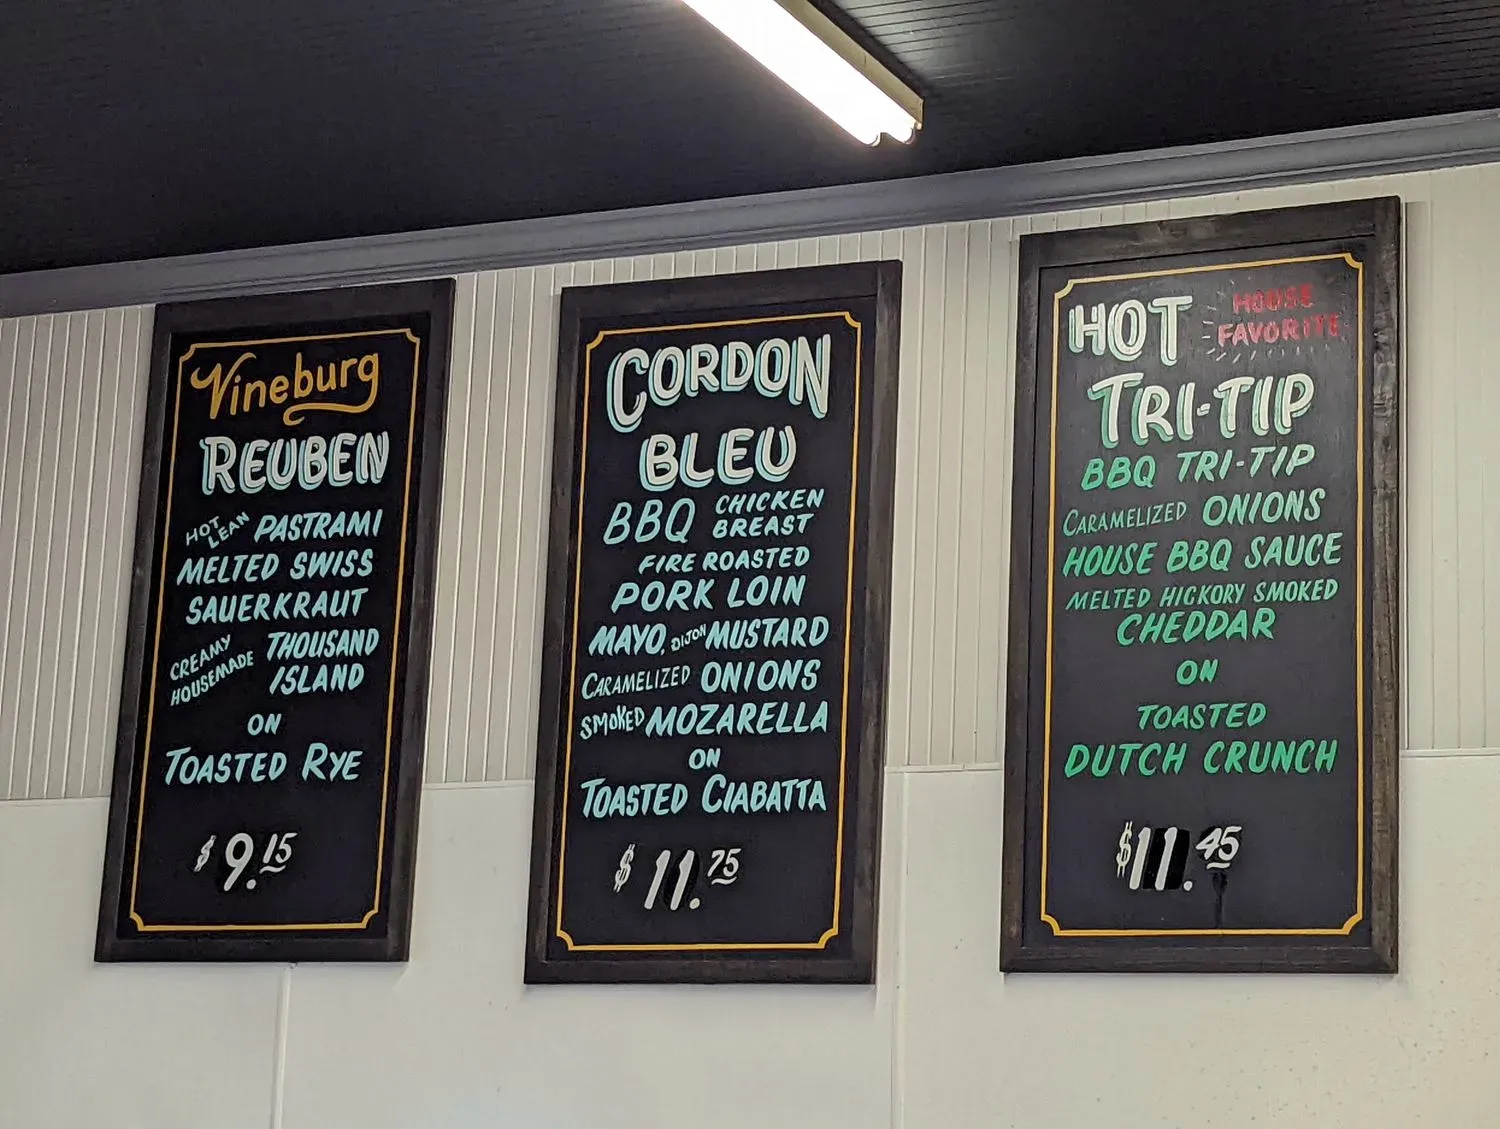 Vineburg
REUBEN
HOT LEAN PASTRAMI
MELTED SWISS
SAUERKRAUT
CREAMY HOUSEMADE THOUSAND ISLAND
ON
TOASTED RYE
$9.15
CORDON
BLEU
BBQ CHICKEN BREAST
FIRE ROASTED
PORK LOIN
MAYO, DIJON MUSTARD
CARAMELIZED ONIONS
SMOKED MOZARELLA
ON
TOASTED CIABATTA
$11.75
HOT HOUSE FAVORITE
TRI-TIP
BBQ TRI-TIP
CARAMELIZED ONIONS
HOUSE BBQ SAUCE
MELTED HICKORY SMOKED
CHEDDAR
ON
TOASTED
DUTCH CRUNCH
$11.45